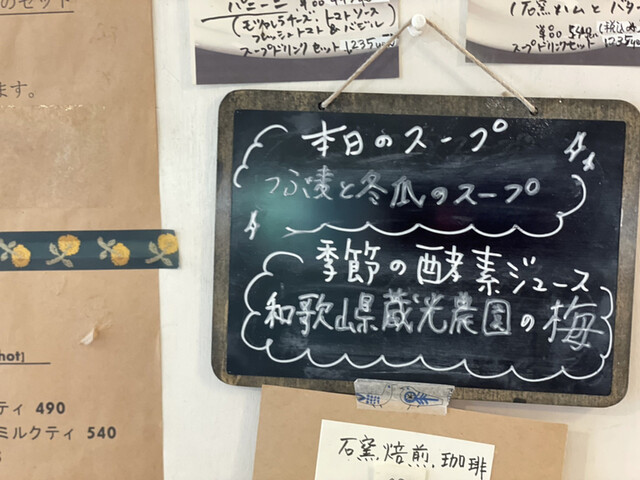 のセット
ます。
パニーニ
(モッツァレラチーズ、トマトソース
フレッシュトマト&バジル)
スープドリンクセット 1235
スープドリンクセット 1235
本日のスープ
冬瓜のスープ
季節の酵素ジュース
和歌山県蔵光農園の梅
hot]
ティ 490
ミルクティ 540
石窯焙煎珈琲